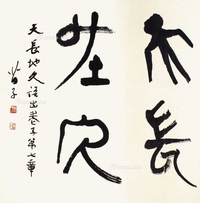 天長
地久
天長地久語出老子第七章